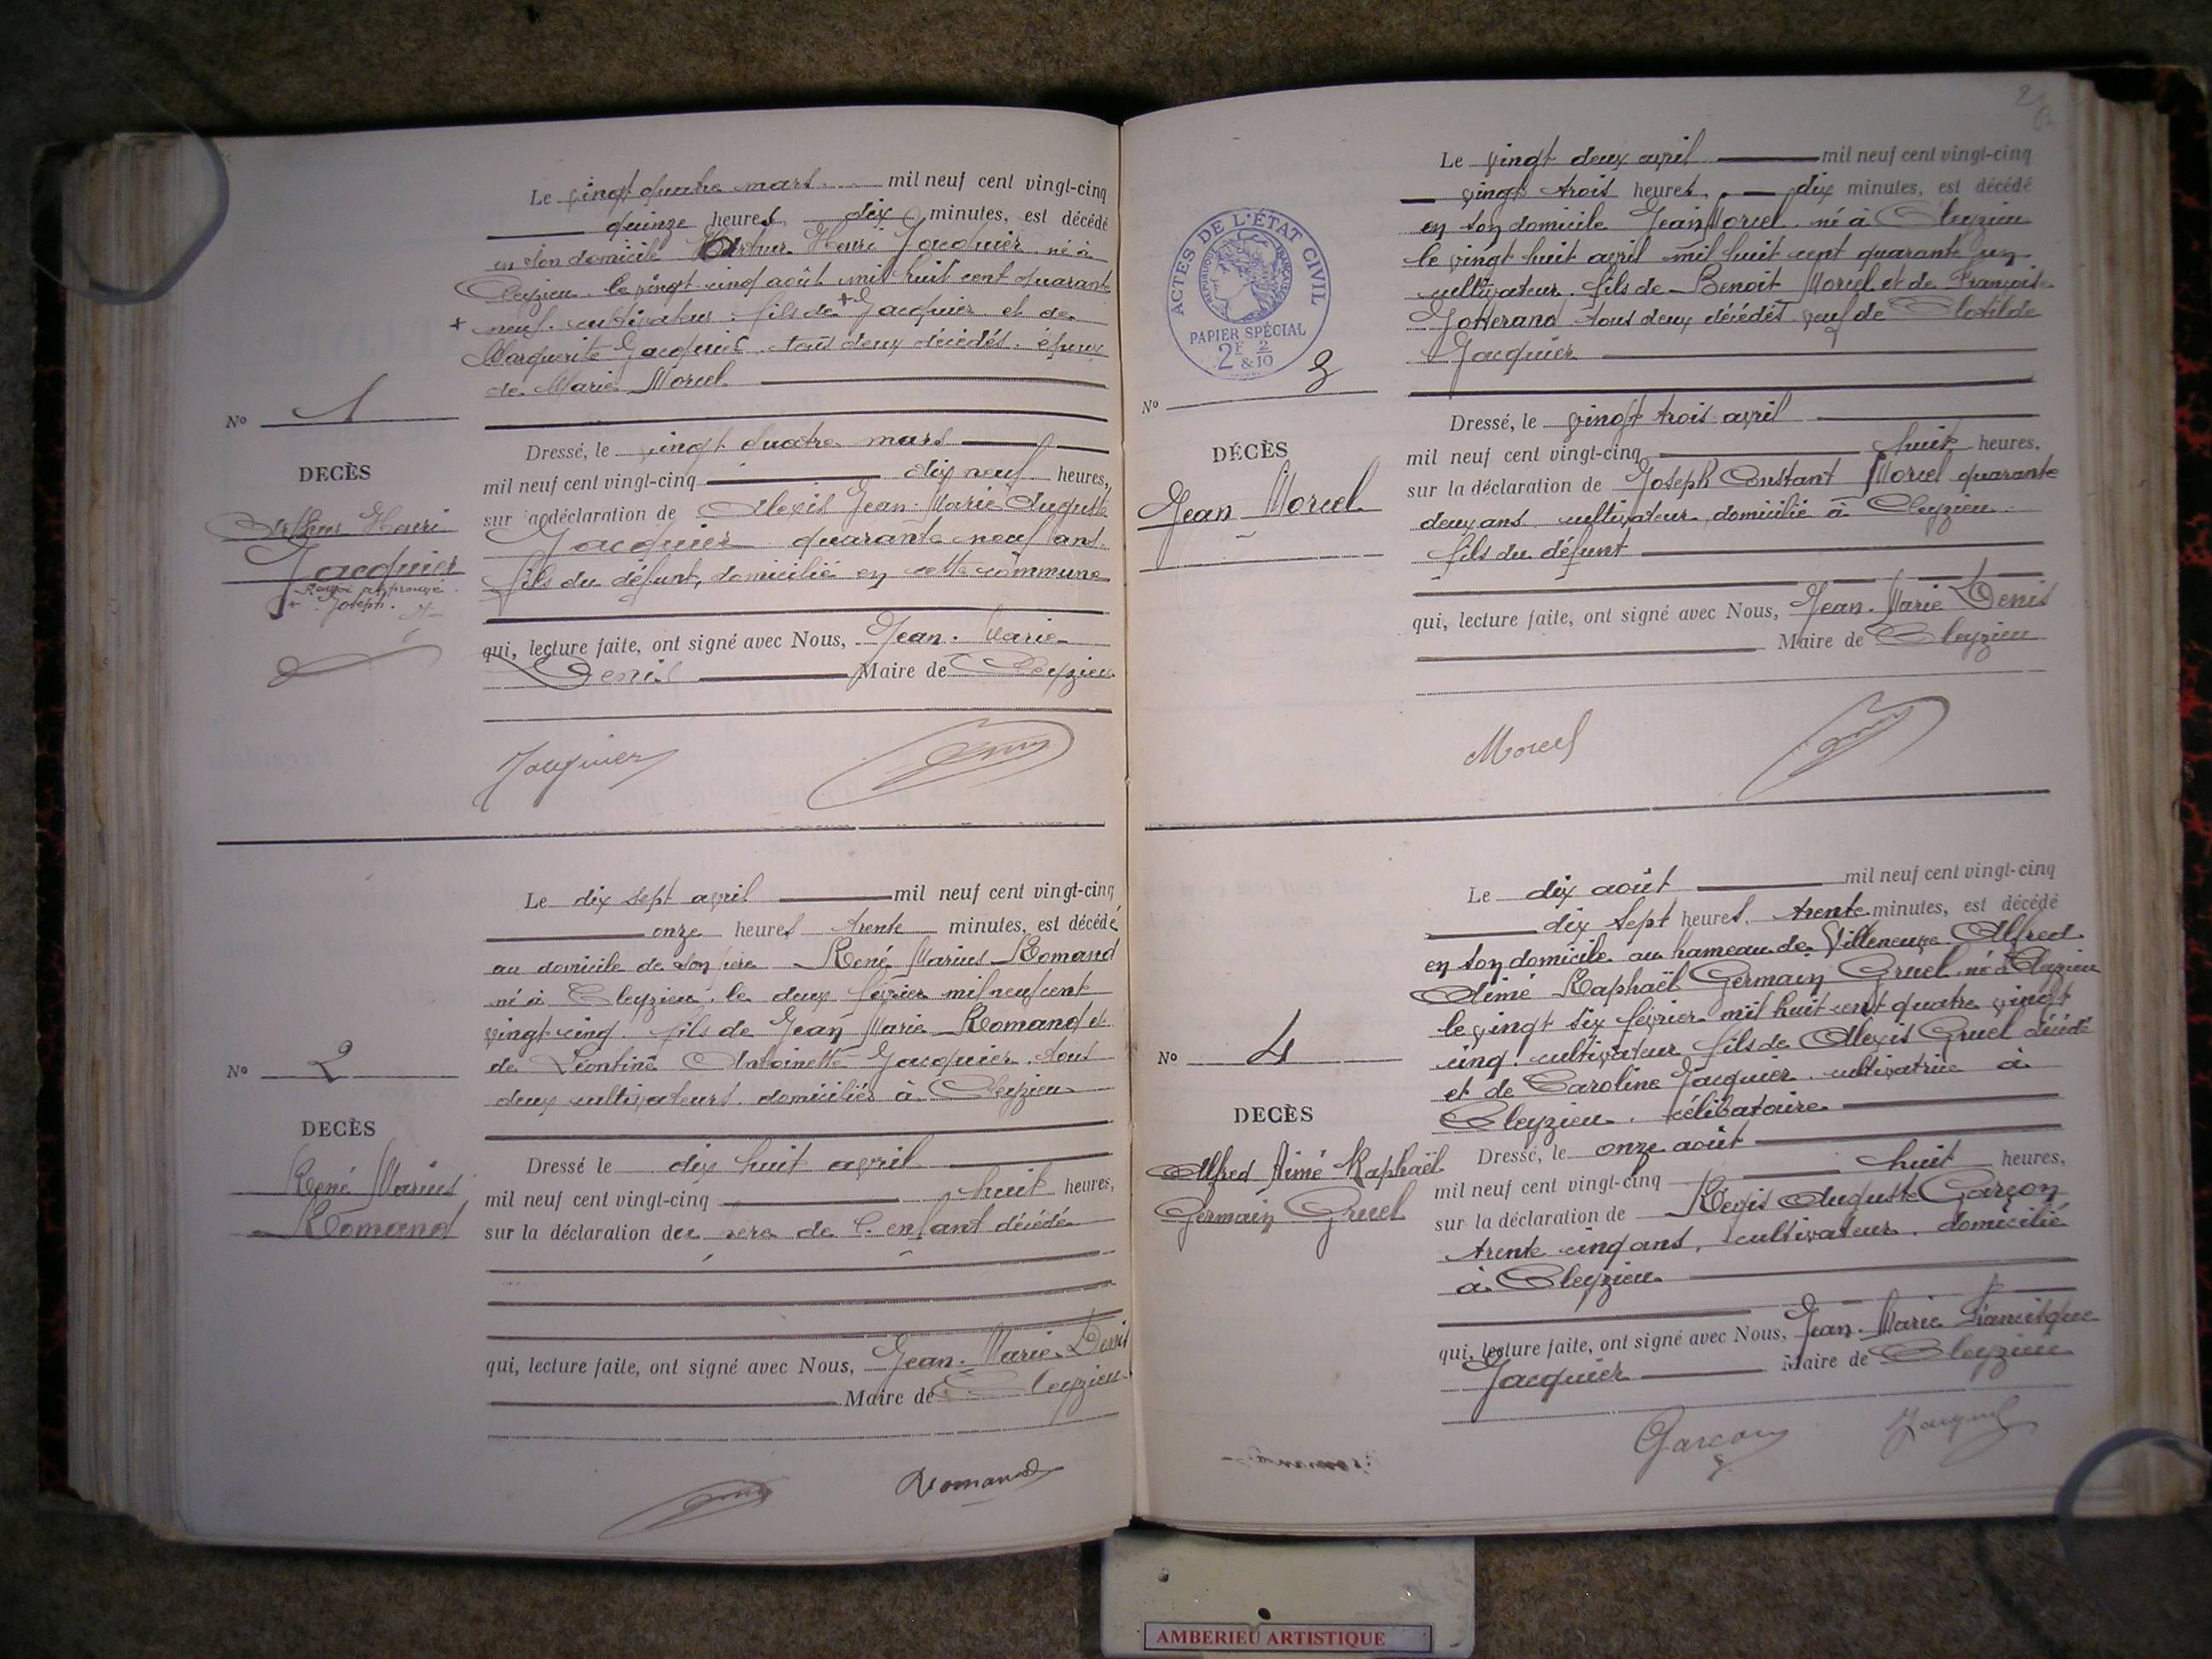 Le vingt quatre mars mil neuf cent vingt-cinq
quinze heures dix minutes, est décédé
en son domicile Arthur Henri Jacquier né à
Cleyzieu le vingt cinq août mil huit cent quarante
+ neuf cultivateur fils de + Jacquier et de
Marguerite Jacquier tous deux décédés époux
de Marie Morel
No 1
DECÈS
Arthur Henri
Jacquier
Renvoi approuvé
+ Joseph.
Dressé, le vingt quatre mars
mil neuf cent vingt-cinq dix neuf heures,
sur la déclaration de Alexis Jean Marie Auguste
Jacquier quarante neuf ans
fils du défunt, domicilié en cette commune
qui, lecture faite, ont signé avec Nous, Jean. Marie
Denis Maire de Cleyzieu
Jacquier
Le dix sept avril mil neuf cent vingt-cinq
onze heures trente minutes, est décédé
au domicile de son père René Marius Romand
né à Cleyzieu le deux février mil neuf cent
vingt cinq. fils de Jean Marie Romand et
de Léontine Antoinette Jacquier tous
deux cultivateurs domiciliés à Cleyzieu
No 2
DECÈS
René Marius
Romand
Dressé le dix huit avril
mil neuf cent vingt-cinq huit heures,
sur la déclaration du père de l'enfant décédé
qui, lecture faite, ont signé avec Nous, Jean. Marie. Denis
Maire de Cleyzieu
Romand
2
ACTES DE L'ÉTAT CIVIL
RÉPUBLIQUE FRANÇAISE
PAPIER SPÉCIAL
2F & 2/10
Le vingt deux avril mil neuf cent vingt-cinq
vingt trois heures dix minutes, est décédé
en son domicile Jean Morel né à Cleyzieu
le vingt huit avril mil huit cent quarante un
cultivateur fils de Benoit Morel et de Françoise
Jotterand tous deux décédés veuf de Clotilde
Jacquier
No 3
DÉCÈS
Jean Morel
Dressé, le vingt trois avril
mil neuf cent vingt-cinq huit heures,
sur la déclaration de Joseph Constant Morel quarante
deux ans cultivateur domicilié à Cleyzieu
fils du défunt
qui, lecture faite, ont signé avec Nous, Jean. Marie Denis
Maire de Cleyzieu
Morel
Le dix août mil neuf cent vingt-cinq
dix sept heures trente minutes, est décédé
en son domicile au hameau de Villeneuve Alfred
Aimé Raphaël Germain Gruel né à Cleyzieu
le vingt six février mil huit cent quatre vingt
cinq. cultivateur fils de Alexis Gruel décédé
et de Caroline Jacquier cultivatrice à
Cleyzieu. célibataire
No 4
DECÈS
Alfred Aimé Raphaël
Germain Gruel
Dressé, le onze août
mil neuf cent vingt-cinq huit heures,
sur la déclaration de Régis Auguste Garçon
trente cinq ans, cultivateur. domicilié
à Cleyzieu
qui, lecture faite, ont signé avec Nous, Jean. Marie Francisque
Jacquier Maire de Cleyzieu
Garçon Jacquier
AMBERIEU ARTISTIQUE